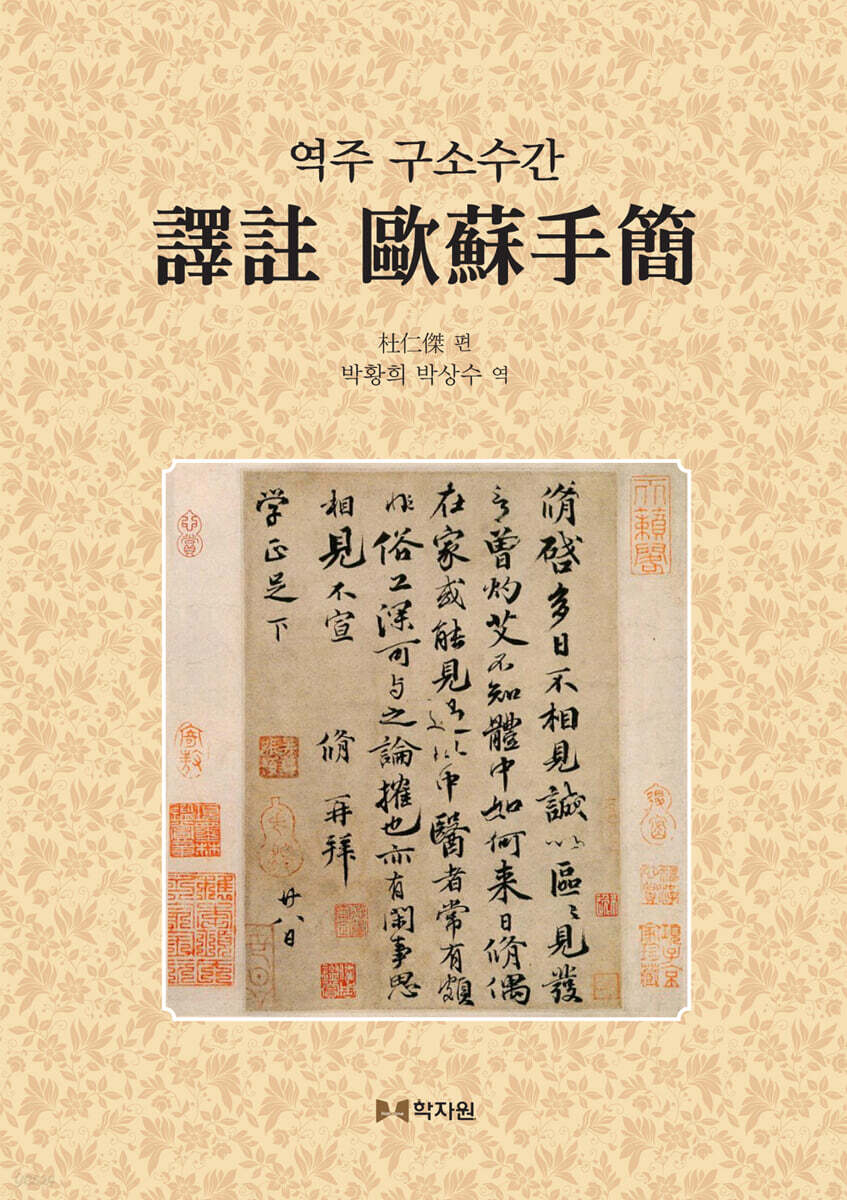 역주 구소수간
譯註 歐蘇手簡
杜仁傑 편
박황희 박상수 역
脩啓多日不相見誠以區〻見發
言曾灼艾不知體中如何来日脩偶
在家或能見過此中醫者常有頗
非俗工深可与之論搉也亦有閑事思
相見不宣 脩 再拜 廿八日
学正足下
天籟閣
학자원